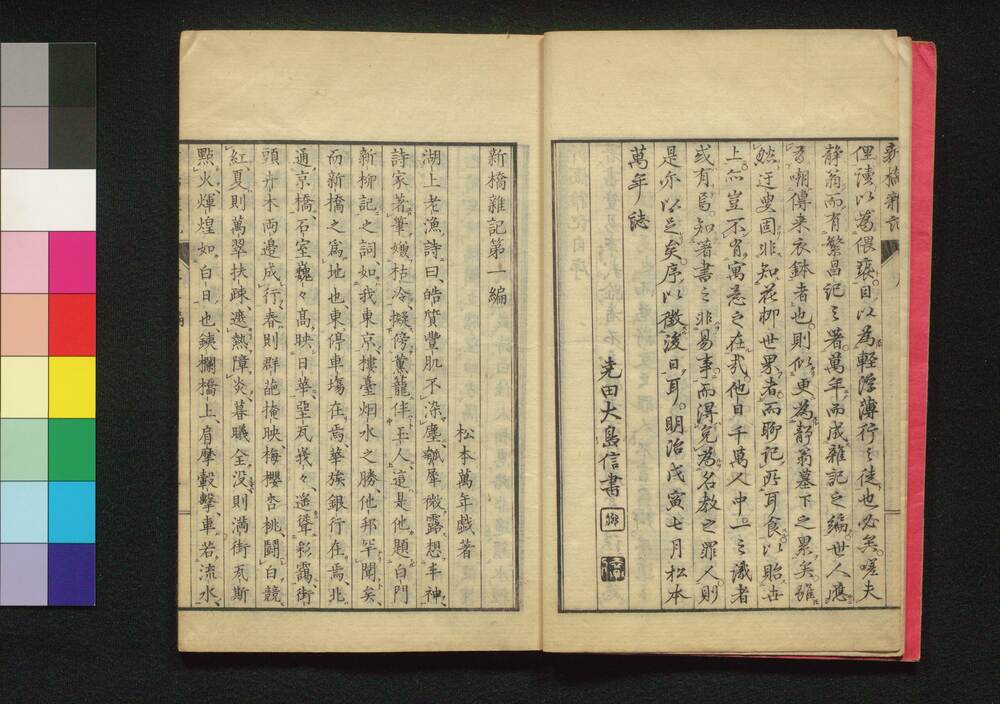 新橋雜記
俚讀以為偎褻目以為輕浮薄行之徒也必矣嗟夫
靜翁而有繁昌記之著萬年而成雜記之編世人應
嘲傳來衣鉢者也則似更為靜翁墓下之累矣雖
然迂叟固非知花柳世界者而聊記所耳食以貽世
上亦豈不肖寓意之在哉他日千萬人中一之識者
或有焉知著書之非易事而得免為名教之罪人則
是亦以足矣序以徵後日耳明治戊寅七月松本
萬年誌
尭田大島信書
新橋雜記第一編
松本萬年戯著
湖上老漁詩曰、皓質豐肌不染塵、瓠犀微露想丰神、
詩家著筆嫌枯冷、擬傍薰籠伴玉人、這是他題白門
新柳記之詞、如我東京樓臺烟水之勝、他邦罕聞矣、
而新橋之為地也、東停車塲在焉、華族銀行在焉、北
通京橋、石室巍々高映日華、堊瓦峩々遙聳彩靄、街
頭卉木両邊成行、春則群葩掩映、梅櫻杏桃、鬪白競
紅、夏則萬翠扶疎、遮熱障炎、暮曦全没則満街瓦斯
點火煇煌如白日也、鐵欄橋上、肩摩轂擊、車若流水、